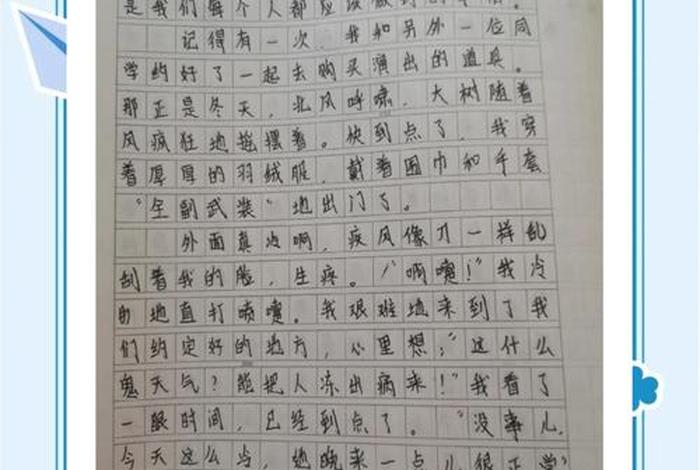 是我们每个人都应该做到的
记得有一次，我和另外一位同
学约好了一起去购买演出的道具。
那正是冬天，北风呼啸，大树随着
风疯狂地摇摆着。快到点了，我穿
着厚厚的羽绒服，戴着围巾和手套
“全副武装”地出门了。
外面真冷啊，疾风像刀一样乱
刮着我的脸，生疼。“啊嚏！”我冷
的地直打喷嚏。我艰难地来到了我
们约定好的地方，心里想：“这什么
鬼天气？能把人冻出病来！”我看了
一眼时间，已经到点了。“没事儿，
今天这么冷，她晚来一点儿很正常”